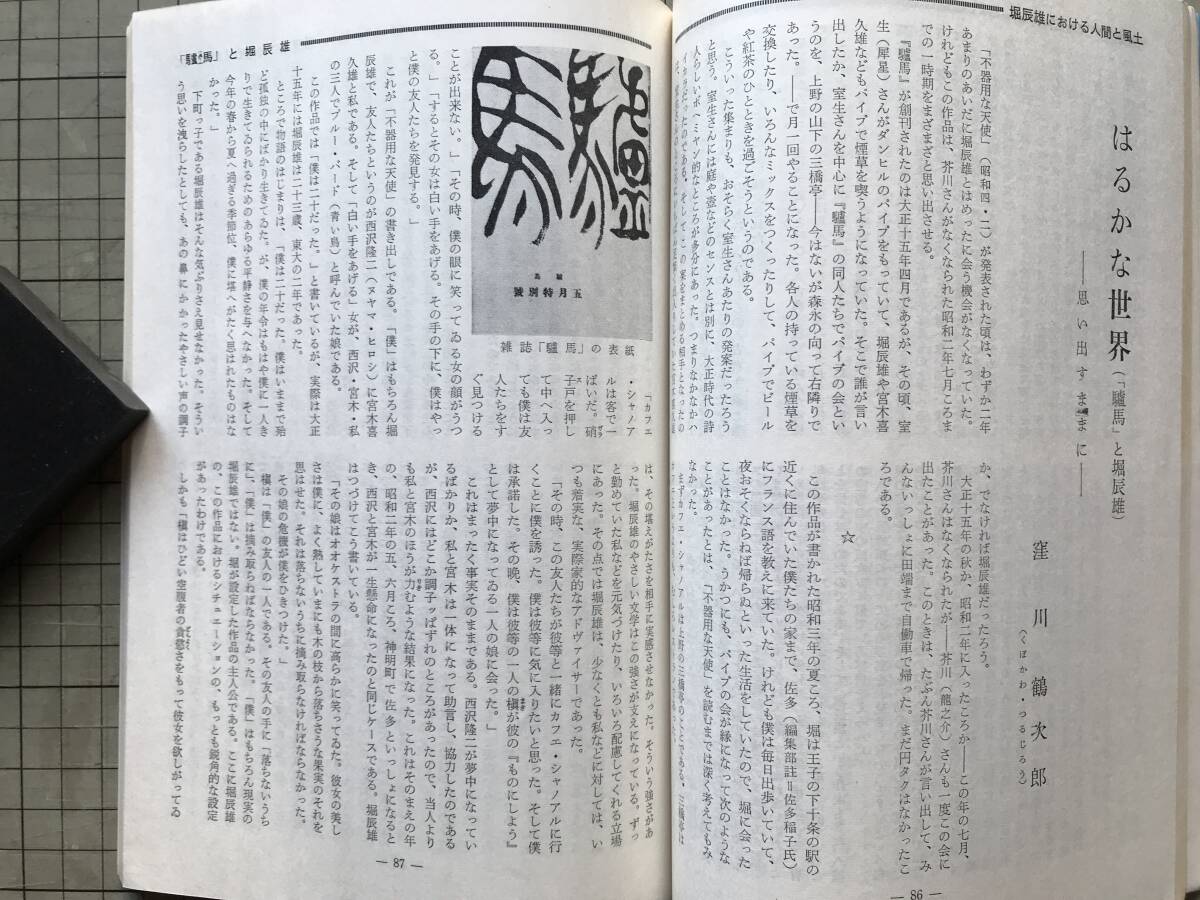 堀辰雄における人間と風土
はるかな世界(「驢馬」と堀辰雄)
――思い出すままに――
窪川鶴次郎
(くぼかわ・つるじろう)
「不器用な天使」(昭和四・二)が発表された頃は、わずか二年
あまりのあいだに堀辰雄とはめったに会う機会がなくなっていた。
けれどもこの作品は、芥川さんがなくなられた昭和二年七月ころま
での一時期をまざまざと思い出させる。
『驢馬』が創刊されたのは大正十五年四月であるが、その頃、室
生(犀星)さんがダンヒルのパイプをもっていて、堀辰雄や宮木喜
久雄などもパイプで煙草を喫うようになっていた。そこで誰が言い
出したか、室生さんを中心に『驢馬』の同人たちでパイプの会とい
うのを、上野の山下の三橋亭――今はないが森永の向って右隣りで
あった。――で月一回やることになった。各人の持っている煙草を
交換したり、いろんなミックスをつくったりして、パイプでビール
や紅茶のひとときを過ごそうというのである。
こういった集まりも、おそらく室生さんあたりの発案だったろう
と思う。室生さんには庭や壺などのセンスとは別に、大正時代の詩
人らしいボヘミヤン的なところが多分にあった。つまりなかなかハ
イカラだったのである。そして、この案をまとめる相手となったの
か、でなければ堀辰雄だったろう。
大正十五年の秋か、昭和二年に入ったころか――この年の七月、
芥川さんはなくなられたが、芥川(龍之介)さんも一度この会に
出たことがあった。このときは、たぶん芥川さんが言い出して、み
んないっしょに田端まで自働車で帰った。まだ円タクはなかったこ
ろである。
☆
この作品が書かれた昭和三年の夏ころ、堀は王子の下十条の駅の
近くに住んでいた僕たちの家まで、佐多(編集部註=佐多稲子氏)
にフランス語を教えに来ていた。けれども僕は毎日出歩いていて、
夜おそくならねば帰らぬといった生活をしていたので、堀に会った
ことはなかった。うかつにも、パイプの会が縁になって次のような
ことがあったとは、「不器用な天使」を読むまでは深く考えてもみ
なかった。
まずカフェ・シャノアルは上野の三橋亭のことである。三橋亭は
― 86 ―
「驢馬」と堀辰雄
驢馬
驢馬
五月特別號
雑誌「驢馬」の表紙
「カフエ
・シャノア
ルは客で一
ぱいだ。硝
子戸を押し
て中へ入っ
ても僕は友
人たちをす
ぐ見つける
ことが出来ない。」「その時、僕の眼に笑ってゐる女の顔がうつ
る。」「するとその女は白い手をあげる。その手の下に、僕はやっ
と僕の友人たちを発見する。」
これが「不器用な天使」の書き出しである。「僕」はもちろん堀
辰雄で、友人たちというのが西沢隆二(ヌヤマ・ヒロシ)に宮木喜
久雄と私である。そして「白い手をあげる」女が、西沢・宮木・私
の三人でブルー・バード(青い鳥)と呼んでいた娘である。
この作品では「僕は二十だった。」と書いているが、実際は大正
十五年には堀辰雄は二十三歳、東大の二年であった。
ところで物語のはじまりは、「僕は二十だった。僕はいままで殆
ど孤独の中にばかり生きてゐた。が、僕の年令はもはや僕に一人き
りで生きてゐられるためのあらゆる平静さを与へなかった。そして
今年の春から夏へ過ぎる季節位、僕に堪へがたく思はれたものはな
かった。」
下町っ子である堀辰雄はそんな気ぶりさえ見せなかった。そうい
う思いを洩らしたとしても、あの鼻にかかったやさしい声の調子
は、その堪えがたさを相手に実感させなかった。そういう強さがあ
った。堀辰雄のやさしい文学はこの強さが支えになっている。ずっ
と勤めていた私などを元気づけたり、いろいろ配慮してくれる立場
にあった。その点では堀辰雄は、少なくとも私などに対しては、い
つも着実な、実際家的なアドヴァイサーであった。
「その時、この友人たちが彼等と一緒にカフエ・シャノアルに行
くことに僕を誘った。僕は彼等に気に入りたいと思った。そして僕
は承諾した。その晩、僕は彼等の一人の槇が彼の『ものにしよう』
として夢中になってゐる一人の娘に会った。」
これはまったく事実そのままである。西沢隆二が夢中になってい
るばかりか、私と宮木は一体になって助言し、協力したのである
が、西沢にはどこか調子ッぱずれのところがあったので、当人より
も私と宮木のほうが力むような結果になった。これはそのまえの年
の、昭和二年の五、六月ころ、神明町で佐多といっしょになると
き、西沢と宮木が一生懸命になったのと同じケースである。堀辰雄
はつづけてこう書いている。
「その娘はオオケストラの間に高らかに笑ってゐた。彼女の美し
さは僕に、よく熟していまにも木の枝から落ちさうな果実のそれを
思はせた。それは落ちないうちに摘み取らなければならなかった。
その娘の危機が僕をひきつけた。」
槇は「僕」の友人の一人である。その友人の手に「落ちないうち
に」、「僕」は摘み取らねばならなかった。「僕」はもちろん現実の
堀辰雄ではない。堀が設定した作品の主人公である。ここに堀辰雄
の、この作品におけるシチュエーションの、もっとも鋭角的な設定
があったわけである。
しかも「槇はひどい空腹者の貪慾さをもって彼女を欲しがってゐ
― 87 ―